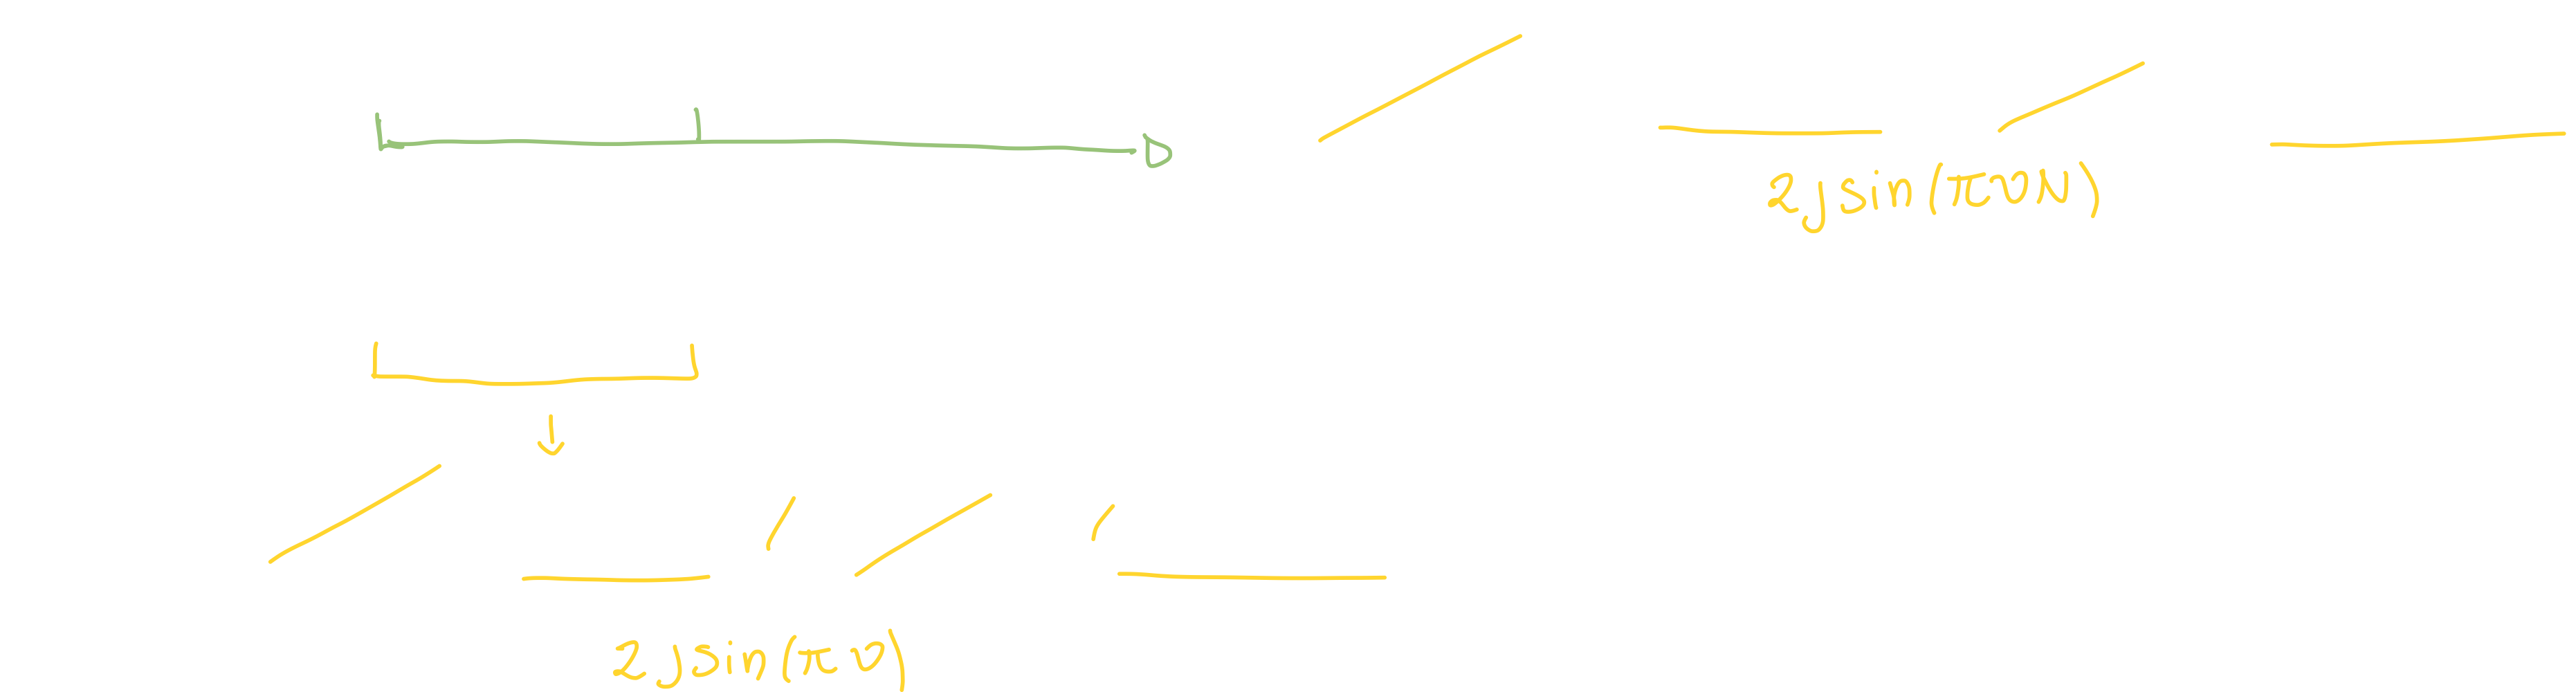 2jsin(πνN)
2jsin(πν)